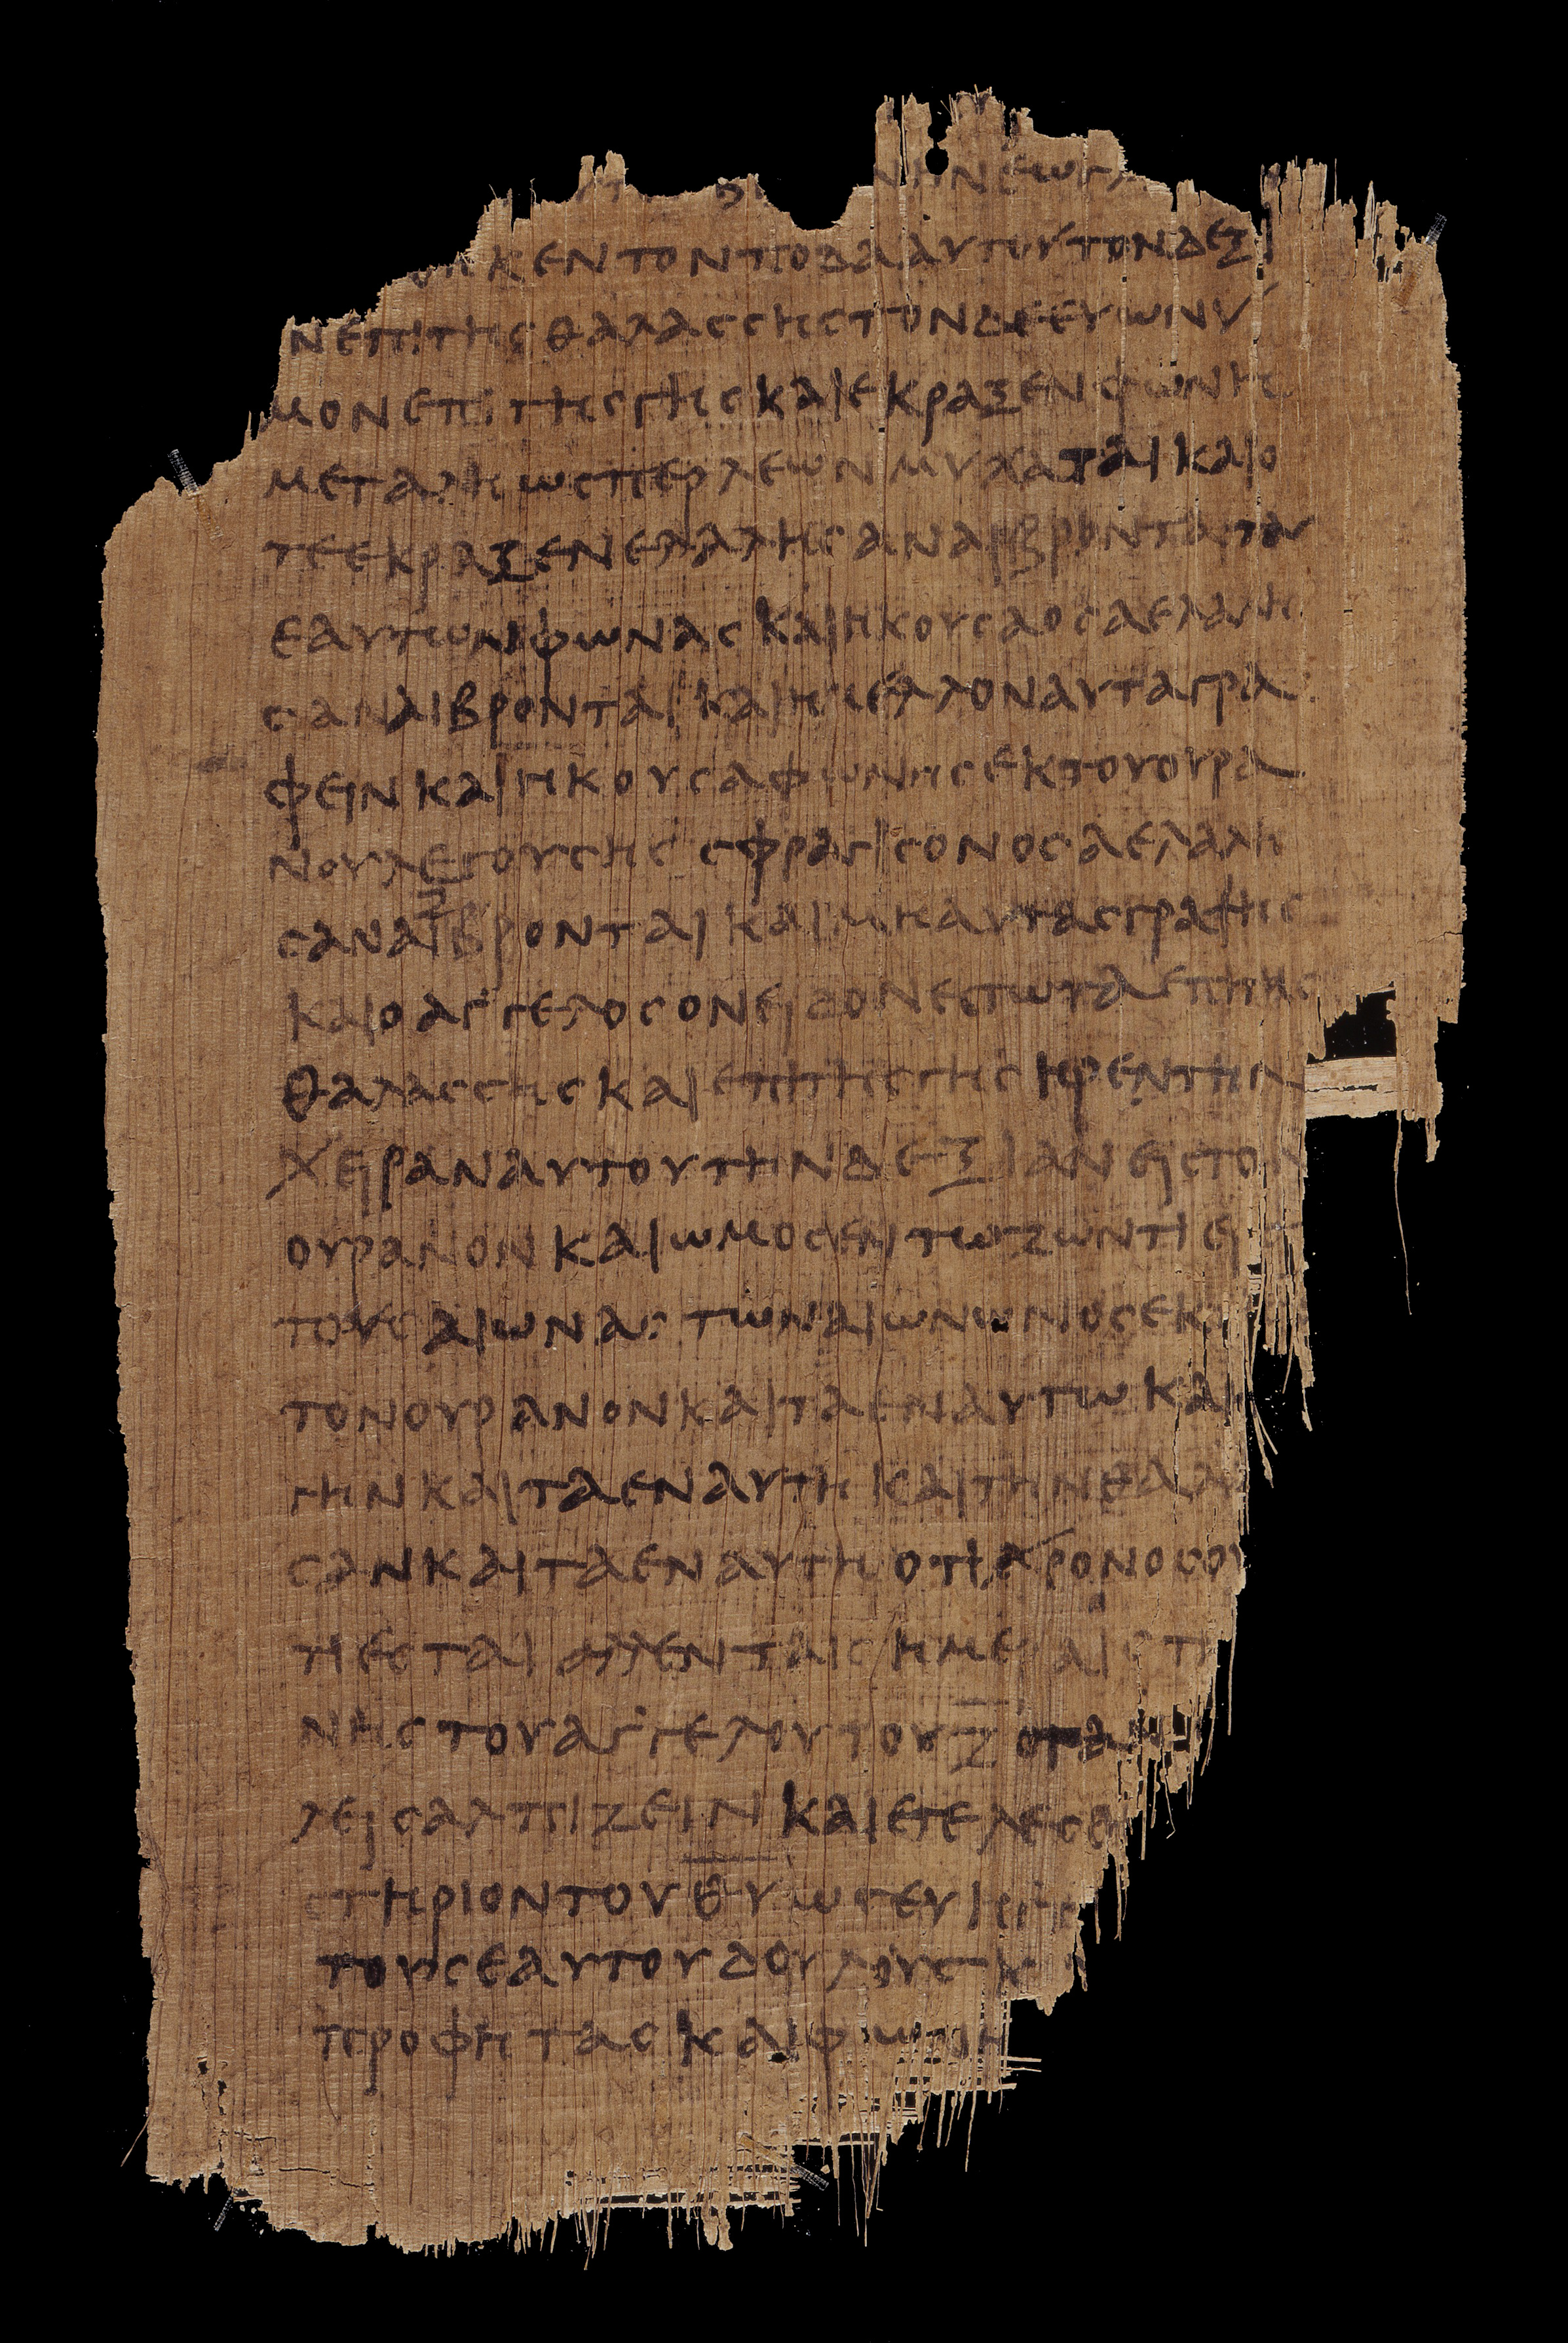 ΝΗΝΕΩΓ
ΘΗΚΕΝΤΟΝΠΟΔΑΑΥΤΟΥΤΟΝΔΕΞΙ
ΝΕΠΙΤΗΣΘΑΛΑΣΣΗΣΤΟΝΔΕΕΥΩΝΥ
ΜΟΝΕΠΙΤΗΣΓΗΣΚΑΙΕΚΡΑΞΕΝΦΩΝΗ
ΜΕΓΑΛΗΩΣΠΕΡΛΕΩΝΜΥΧΑΤΑΙΚΑΙΟ
ΤΕΕΚΡΑΞΕΝΕΛΑΛΗΣΑΝΑΙΒΡΟΝΤΑΙΤΑΙ
ΕΑΥΤΩΝΦΩΝΑΣΚΑΙΗΚΟΥΣΑΟΣΑΕΛΑΛΗ
ΣΑΝΑΙΒΡΟΝΤΑΙΚΑΙΗΜΕΛΛΟΝΑΥΤΑΓΡΑ
ΦΕΙΝΚΑΙΗΚΟΥΣΑΦΩΝΗΣΕΚΤΟΥΟΥΡΑ
ΝΟΥΛΕΓΟΥΣΗΣΣΦΡΑΓΙΣΟΝΟΣΑΕΛΑΛΗ
ΣΑΝΑΙΖΒΡΟΝΤΑΙΚΑΙΜΗΑΥΤΑΣΓΡΑΨΗΣ
ΚΑΙΟΑΓ'ΓΕΛΟΣΟΝΕΙΔΟΝΕΣΤΩΤΑΕΠΙΤΗΣ
ΘΑΛΑΣΣΗΣΚΑΙΕΠΙΤΗΣΓΗΣΗΡΕΝΤΗΝ
ΧΕΙΡΑΝΑΥΤΟΥΤΗΝΔΕΞΙΑΝΕΙΣΤΟΝ
ΟΥΡΑΝΟΝΚΑΙΩΜΟΣΕΝΤΩΖΩΝΤΙΕΙ
ΤΟΥΣΑΙΩΝΑΣΤΩΝΑΙΩΝΩΝΟΣΕΚ
ΤΟΝΟΥΡΑΝΟΝΚΑΙΤΑΕΝΑΥΤΩΚΑΙ
ΓΗΝΚΑΙΤΑΕΝΑΥΤΗΚΑΙΤΗΝΘΑΛΑ
ΣΑΝΚΑΙΤΑΕΝΑΥΤΗΟΤΙΧΡΟΝΟΣΟΥ
ΤΙΕΣΤΑΙΑΛΛΕΝΤΑΙΣΗΜΕΡΑΙΣΤΗ
ΝΗΣΤΟΥΑΓ'ΓΕΛΟΥΤΟΥΖΟΤΑΝ
ΛΕΙΣΑΛΠΙΖΕΙΝΚΑΙΕΤΕΛΕΣΘ
ΣΤΗΡΙΟΝΤΟΥΘΥΩΣΕΥΗΓΓ
ΤΟΥΣΕΑΥΤΟΥΔΟΥΛΟΥΣΚ
ΠΡΟΦΗΤΑΣΚΑΙΦΩΝΗ